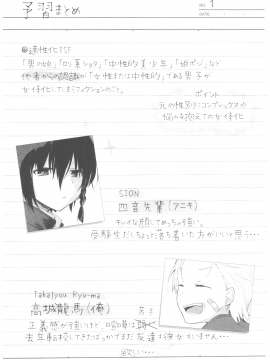 予習まとめ
NO. 1
DATE
●雄性化TSF
「男の娘」「ロリ系ショタ」「中性的美少年」「姫ポジ」など
他者からの認識が「女性または中性的」である男子が
女体化してしまうフィクションのこと。
ポイント
元の性別にコンプレックスや
悩みを抱えての女体化
SION
四音先輩(アニキ)
キレイな顔してめっちゃ強い。
受験生だしちょっと落ち着いた方がいいと思う…
Takajyou Ryu-ma
高城龍馬(俺)
正義感が強いけど、喧嘩は弱く
去年転校してきたばっかでまだ友達も彼女もいません…
欲しい…